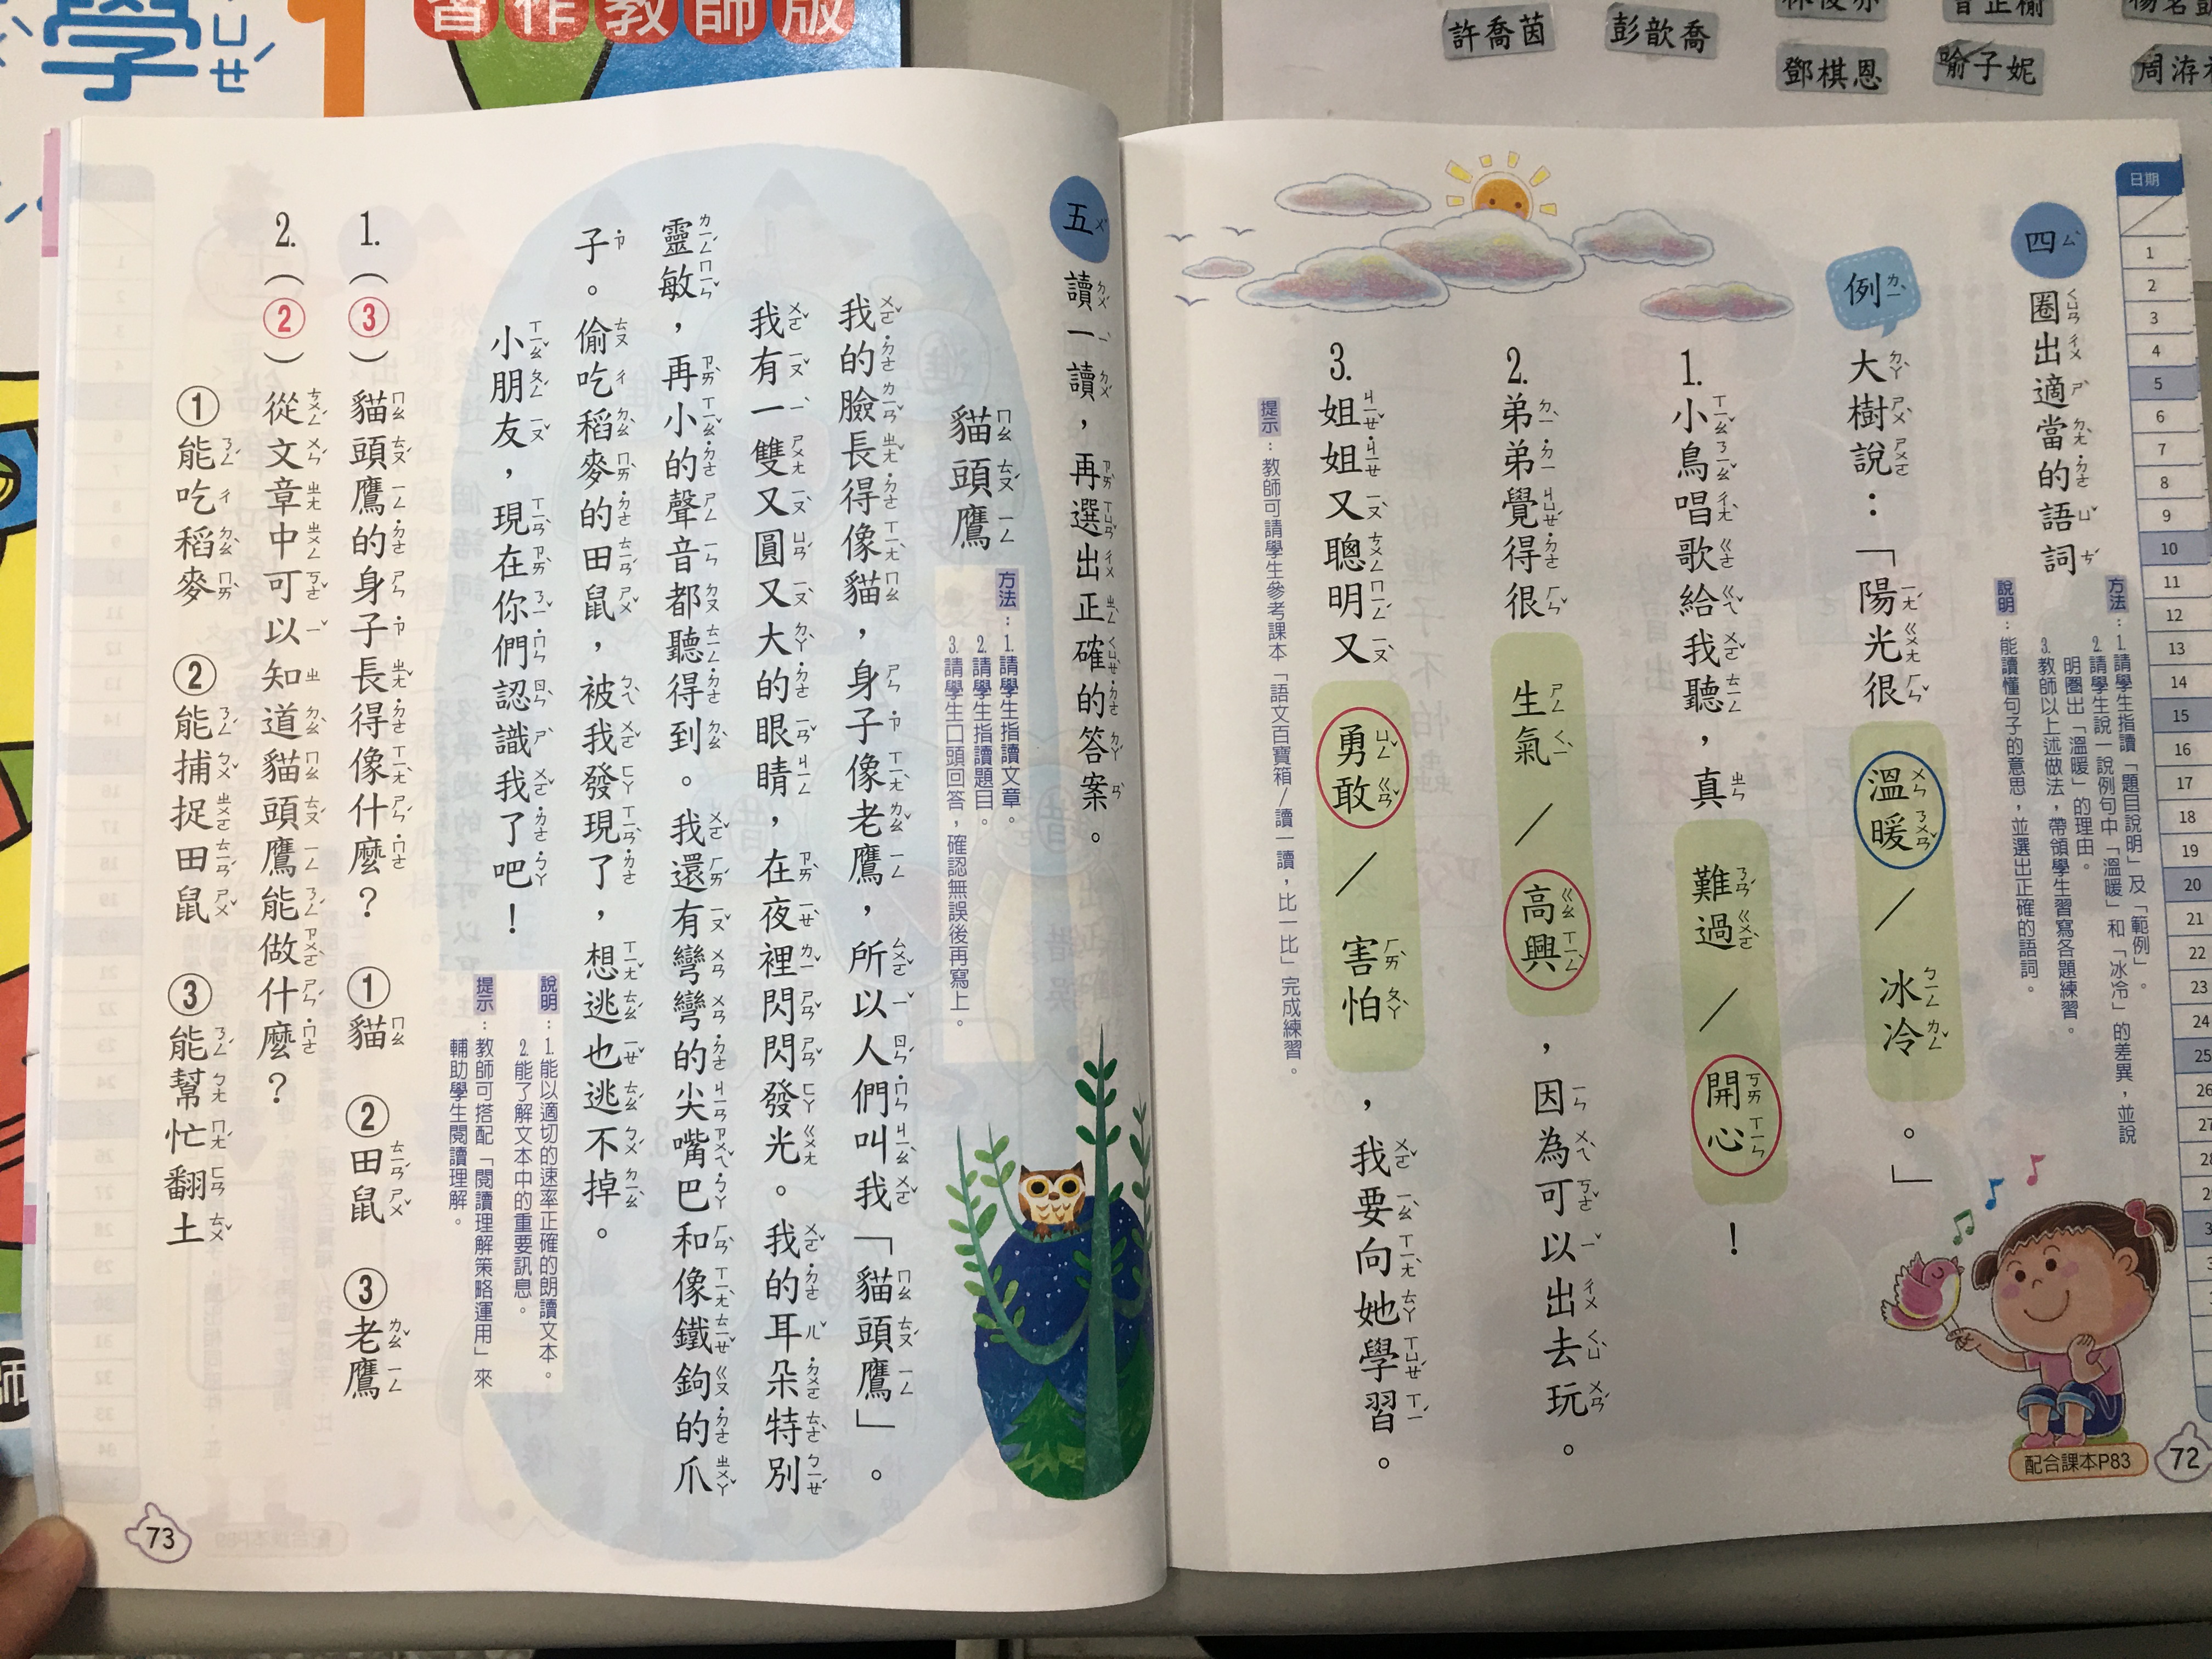 學ㄒㄩㄝˊ
1
習作教師版
許喬茵
彭歆喬
鄧棋恩
喻子妮
日期
1
2
3
4
5
6
7
8
9
10
11
12
13
14
15
16
17
18
19
20
21
22
23
24
25
26
27
四 圈出適當的語詞
方法：1.請學生指讀「題目說明」及「範例」。
2.請學生說一說例句中「溫暖」和「冰冷」的差異，並說
明圈出「溫暖」的理由。
3.教師以上述做法，帶領學生習寫各題練習。
說明：能讀懂句子的意思，並選出正確的語詞。
例 大樹說：「陽光很 溫暖／冰冷 。」
1. 小鳥唱歌給我聽，真 難過／開心 ！
2. 弟弟覺得很 生氣／高興 ，因為可以出去玩。
3. 姐姐又聰明又 勇敢／害怕 ，我要向她學習。
提示：教師可請學生參考課本「語文百寶箱/讀一讀，比一比」完成練習。
配合課本P83
72
五 讀一讀，再選出正確的答案。
方法：1.請學生指讀文章。
2.請學生指讀題目。
3.請學生口頭回答，確認無誤後再寫上。
貓頭鷹
我的臉長得像貓，身子像老鷹，所以人們叫我「貓頭鷹」。
我有一雙又圓又大的眼睛，在夜裡閃閃發光。我的耳朵特別
靈敏，再小的聲音都聽得到。我還有彎彎的尖嘴巴和像鐵鉤的爪
子。偷吃稻麥的田鼠，被我發現了，想逃也逃不掉。
小朋友，現在你們認識我了吧！
說明：1.能以適切的速率正確的朗讀文本。
2.能了解文本中的重要訊息。
提示：教師可搭配「閱讀理解策略運用」來
輔助學生閱讀理解。
1.（③）貓頭鷹的身子長得像什麼？ ①貓 ②田鼠 ③老鷹
2.（②）從文章中可以知道貓頭鷹能做什麼？
①能吃稻麥 ②能捕捉田鼠 ③能幫忙翻土
73
師